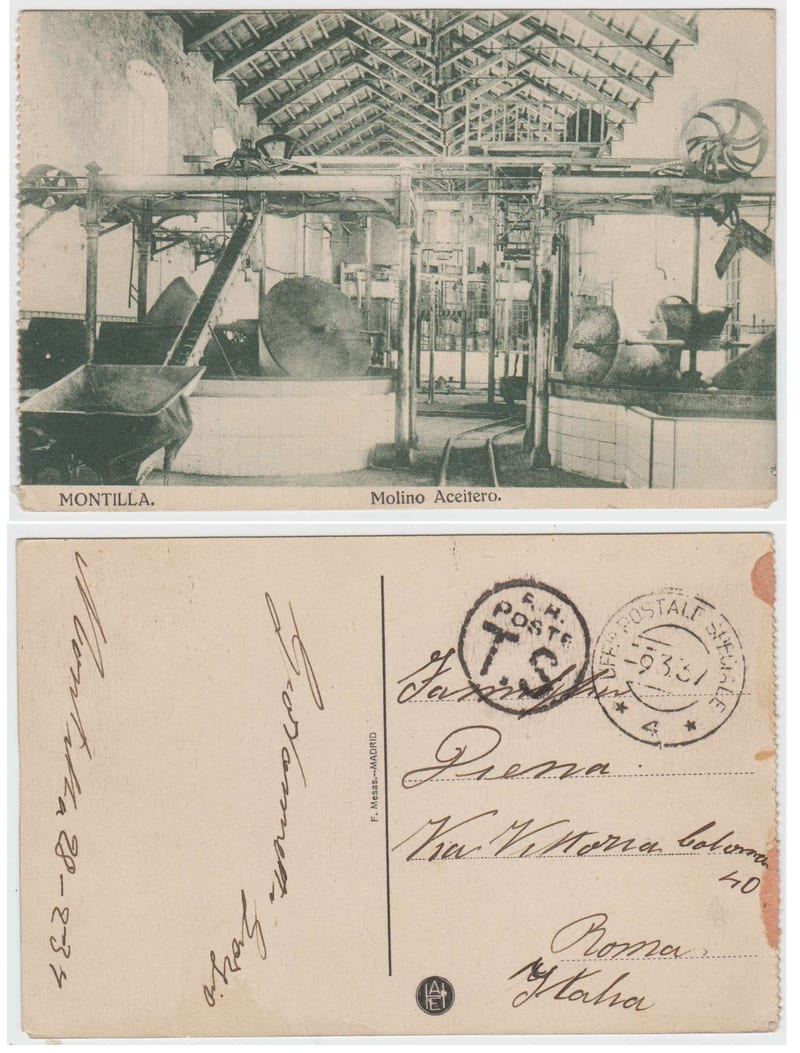 MONTILLA.
Molino Aceitero.
Montilla 28-2-37
Giorgio
F. Mesas.—MADRID
HAE
R.H.
POSTE
T S
UFFº POSTALE SPECIALE
-9.3.37
* 4 *
Famiglia
Piena
Via Vittoria Colonna
40
Roma
Italia